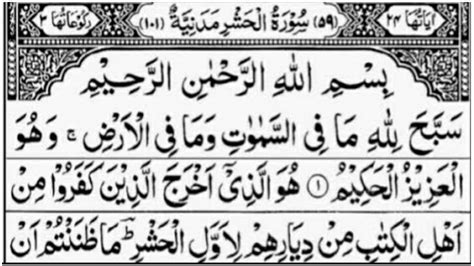 اٰيَاتُهَا ٢٤ (٥٩) سُوْرَةُ الْحَشْرِ مَدَنِيَّةٌ (١٠١) رُكُوْعَاتُهَا ٣
بِسْمِ اللّٰهِ الرَّحْمٰنِ الرَّحِيْمِ
سَبَّحَ لِلّٰهِ مَا فِي السَّمٰوٰتِ وَمَا فِي الْاَرْضِ ۚ وَهُوَ
الْعَزِيْزُ الْحَكِيْمُ ﴿١﴾ هُوَ الَّذِيْٓ اَخْرَجَ الَّذِيْنَ كَفَرُوْا مِنْ
اَهْلِ الْكِتٰبِ مِنْ دِيَارِهِمْ لِاَوَّلِ الْحَشْرِ ؕ مَا ظَنَنْتُمْ اَنْ